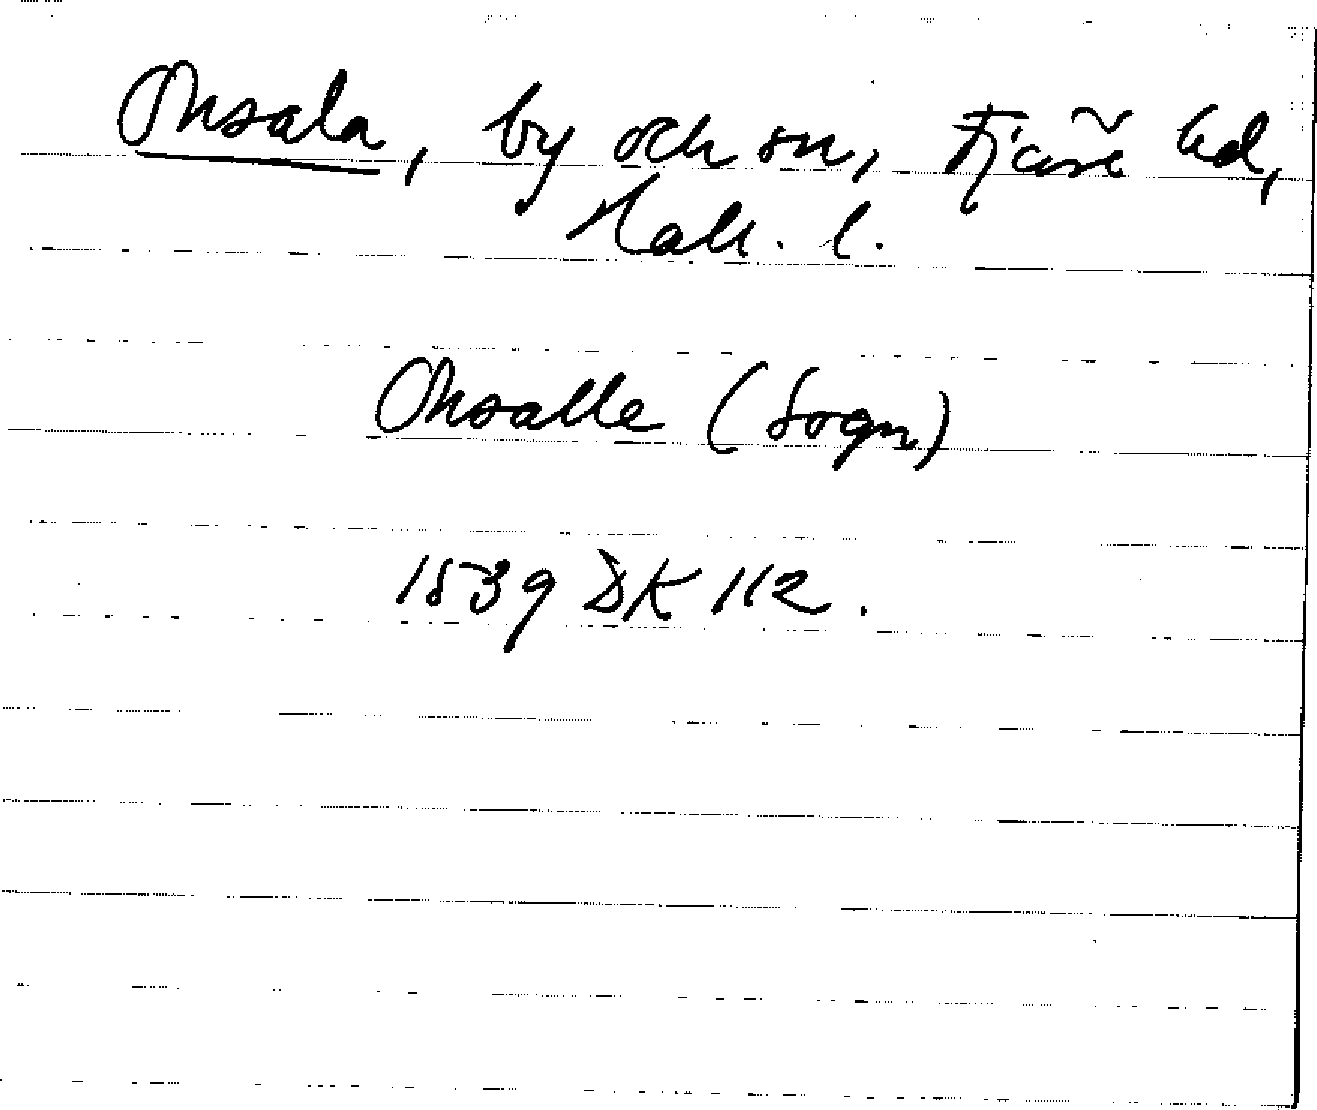 Onsala, by och sn, Fjäre hd,
Hall. l.
Onsalle (Sogn)
1539 DK 112.